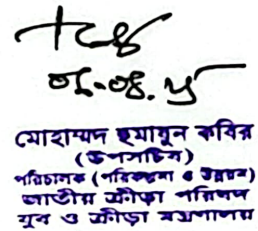 ০৮.০৪.
মোহাম্মদ হুমায়ুন কবির
(উপসচিব)
পরিচালক (পরিকল্পনা ও উন্নয়ন)
জাতীয় ক্রীড়া পরিষদ
যুব ও ক্রীড়া মন্ত্রণালয়